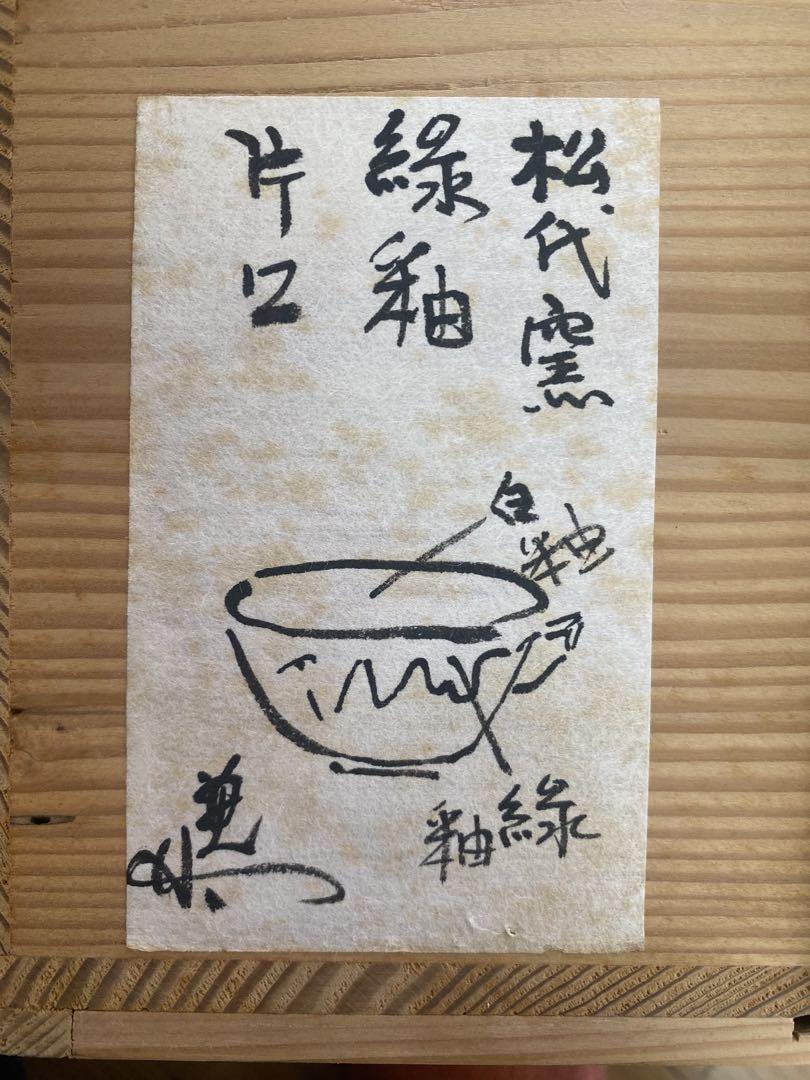 松代窯
緑釉
片口
白釉
緑釉